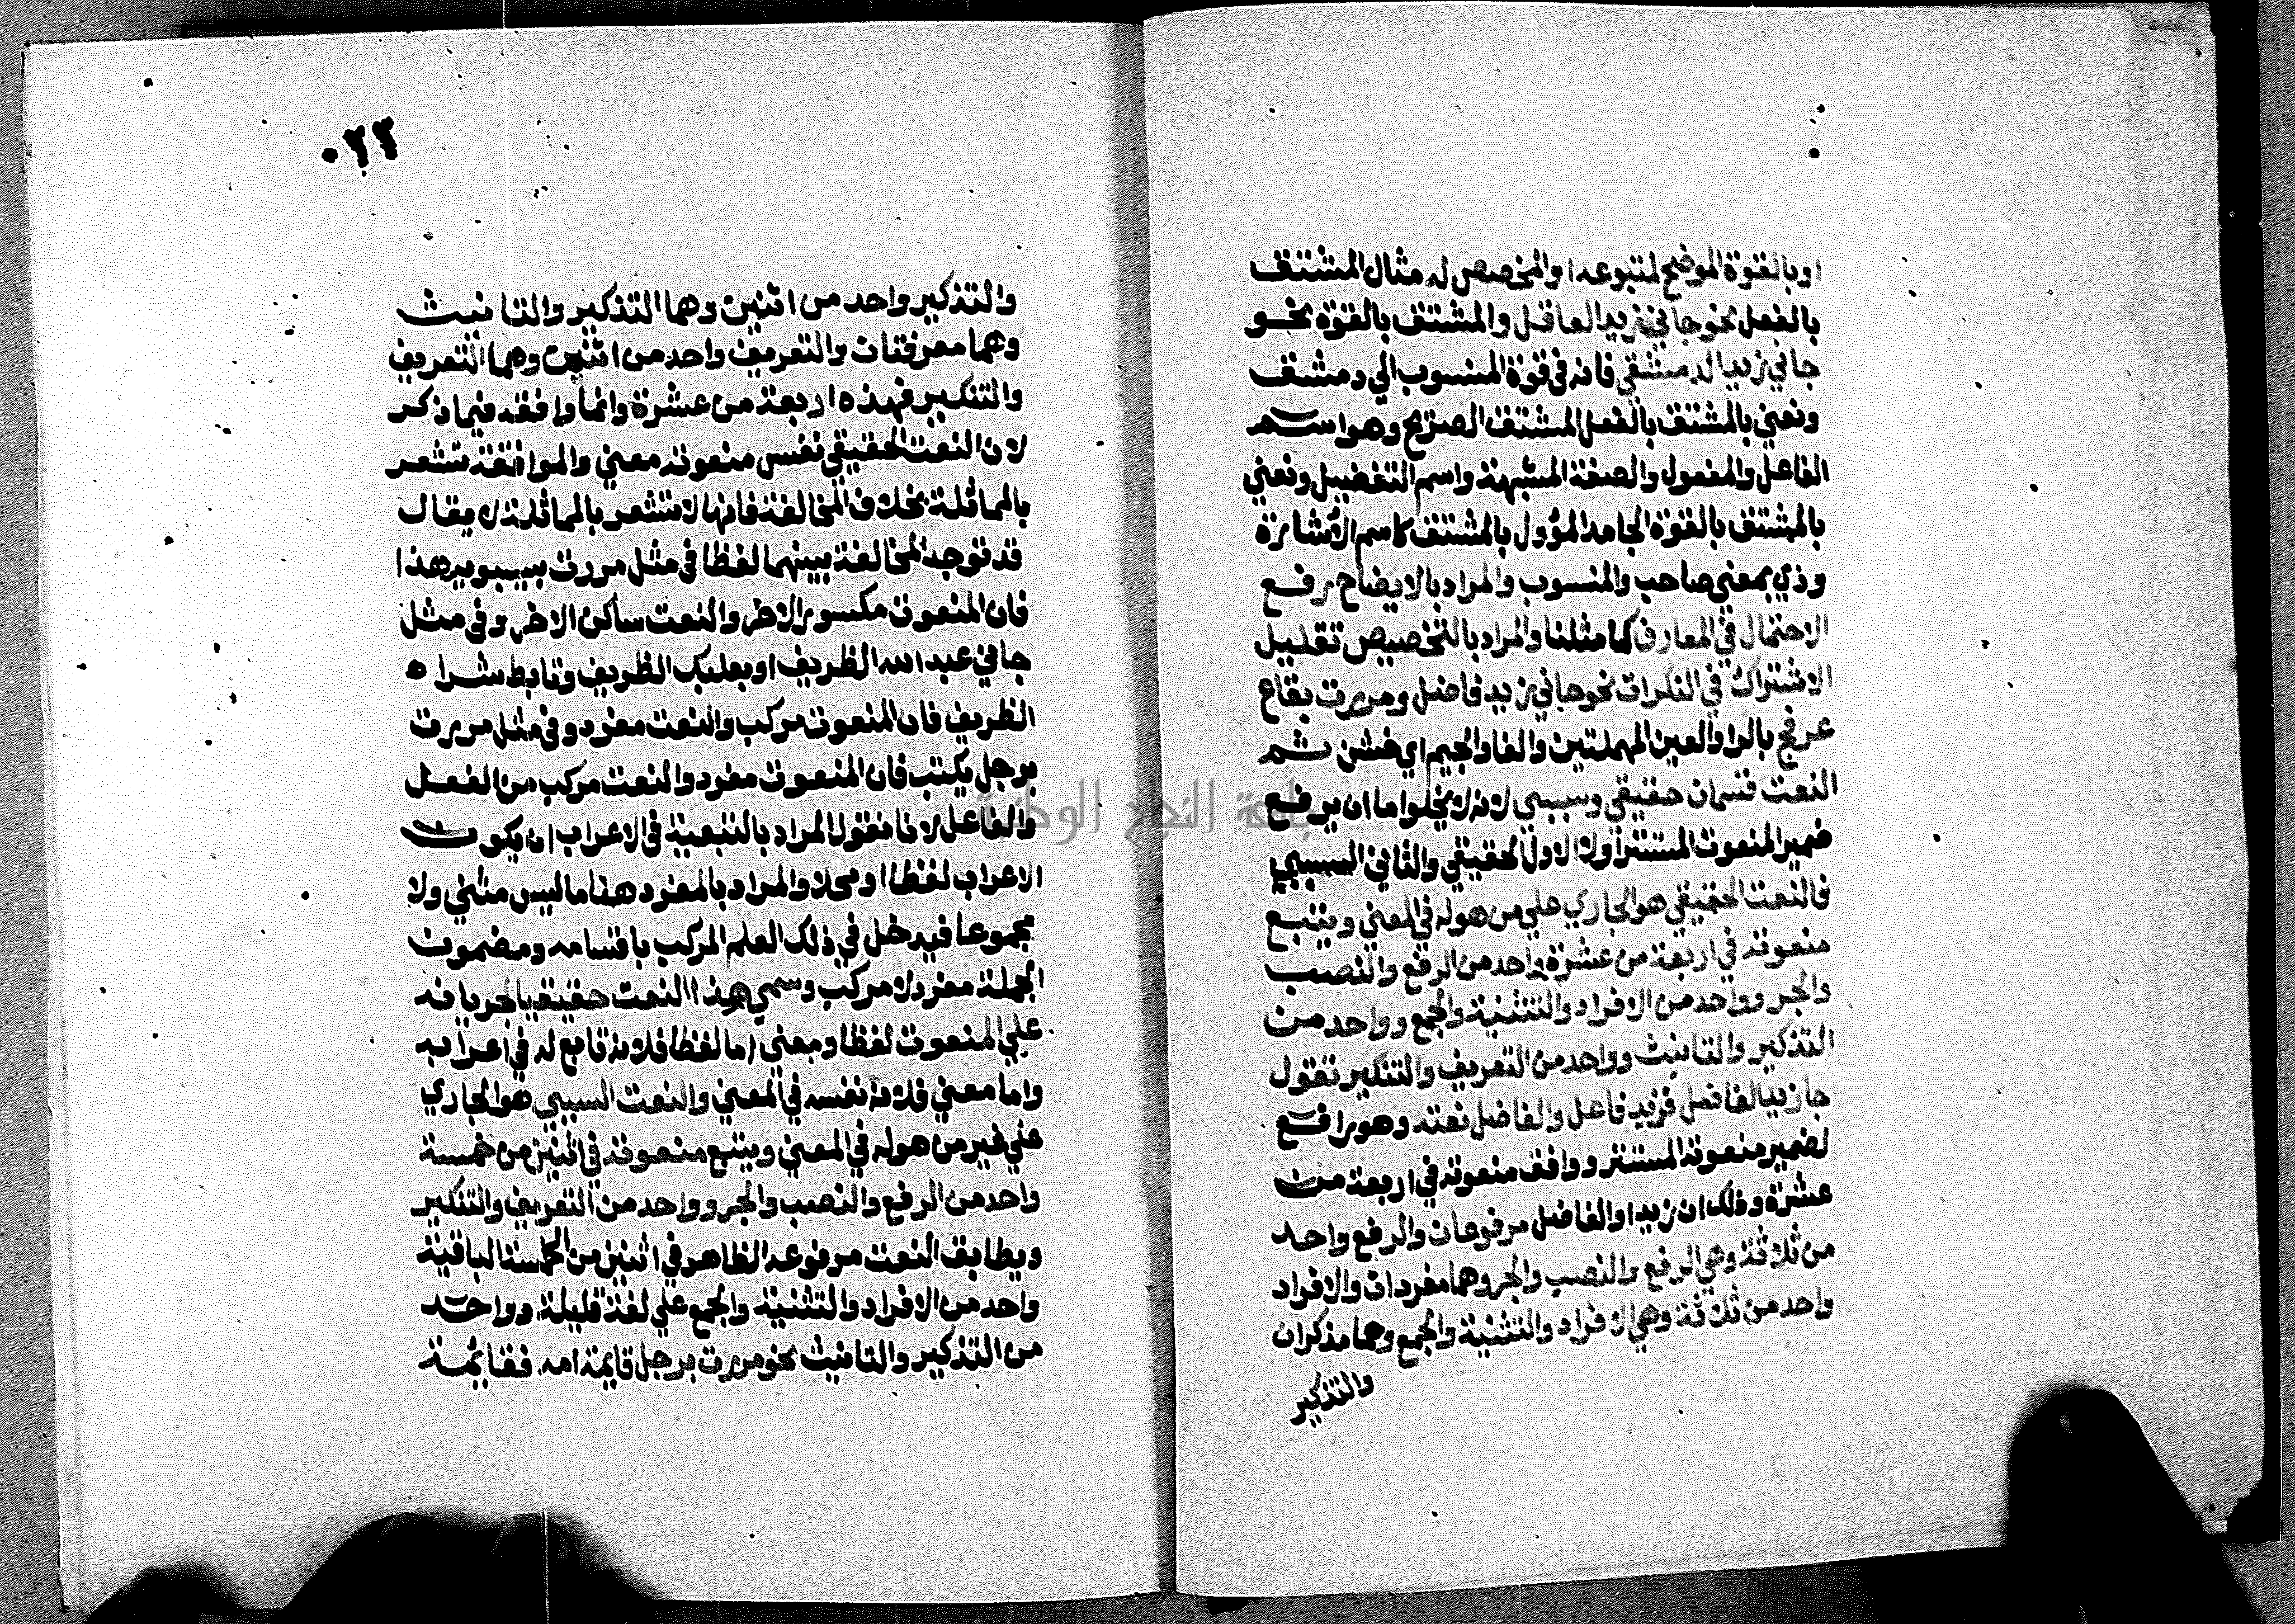 او بالقوة الموضح لمتبوعه او المخصص له مثال المشتق
بالفعل نحو جاني زيد العاقل والمشتق بالقوة نحو
جاني زيد الدمشقي فانه في قوة المنسوب الي دمشق
ونعني بالمشتق بالفعل المشتق الصريح وهو اسم
الفاعل والمفعول والصفة المشبهة واسم التفضيل ونعني
بالمشتق بالقوة الجامد المؤول بالمشتق كاسم الاشارة
وذي بمعني صاحب والمنسوب والمراد بالايضاح رفع
الاحتمال في المعارف كما مثلنا والمراد بالتخصيص تقليل
الاشتراك في النكرات نحو جاني زيد فاضل ومررت بقاع
عرفج بالرا والعين المهملتين والفا والجيم اي خشن ثم
النعت قسمان حقيقي وسببي لانه لا يخلوا ما ان يرفع
ضمير المنعوت المستتر اولا الاول الحقيقي والثاني السببي
فالنعت الحقيقي هو الجاري علي من هو له في المعني ويتبع
منعوته في اربعة من عشرة واحد من الرفع والنصب
والجر وواحد من الافراد والتثنية والجمع وواحد من
التذكير والتانيث وواحد من التعريف والتنكير تقول
جا زيد الفاضل فزيد فاعل والفاضل نعته وهو رافع
لضمير منعوته المستتر ووافق منعوته في اربعة من
عشرة وذلك ان زيدا والفاضل مرفوعان والرفع واحد
من ثلاثة وهي الرفع والنصب والجر وهما مفردان والافراد
واحد من ثلاثة وهي الافراد والتثنية والجمع وهما مذكران
والتذكير
٠٢٣
والتذكير واحد من اثنين وهما التذكير والتانيث
وهما معرفتان والتعريف واحد من اثنين وهما التعريف
والتنكير فهذه اربعة من عشرة وانما وافقه فيما ذكر
لان النعت الحقيقي نفس منعوته معني والموافقة تشعر
بالمماثلة بخلاف المخالفة فانها لا تشعر بالمماثلة لا يقال
قد توجد المخالفة بينهما لفظا في مثل مررت بسيبويه هذا
فان المنعوت مكسور الاخر والنعت ساكن الاخر وفي مثل
جاني عبد الله الظريف او بعلبك الظريف وتابط شرا ه
الظريف فان المنعوت مركب والنعت مفرد وفي مثل مررت
برجل يكتب فان المنعوت مفرد والنعت مركب من الفعل
والفاعل لانا نقول المراد بالتبعية في الاعراب ان يكون
الاعراب لفظا او محلا والمراد بالمفرد هنا ما ليس مثني ولا
مجموعا فيدخل في ذلك العلم المركب باقسامه ومضمون
الجملة مفرد لا مركب وسمي هذا النعت حقيقيا لجريانه
علي المنعوت لفظا ومعني اما لفظا فلانه تابع له في اعرابه
واما معني فلانه نفسه في المعني والنعت السببي هو الجاري
علي غير من هو له في المعني ويتبع منعوته في اثنين من خمسة
واحد من الرفع والنصب والجر وواحد من التعريف والتنكير
ويطابق النعت مرفوعه الظاهر في اثنين من الخمسة الباقية
واحد من الافراد والتثنية والجمع علي لغة قليلة وواحد
من التذكير والتانيث نحو مررت برجل قايمة امه فقايمة
جامعة النجاح الوطنية